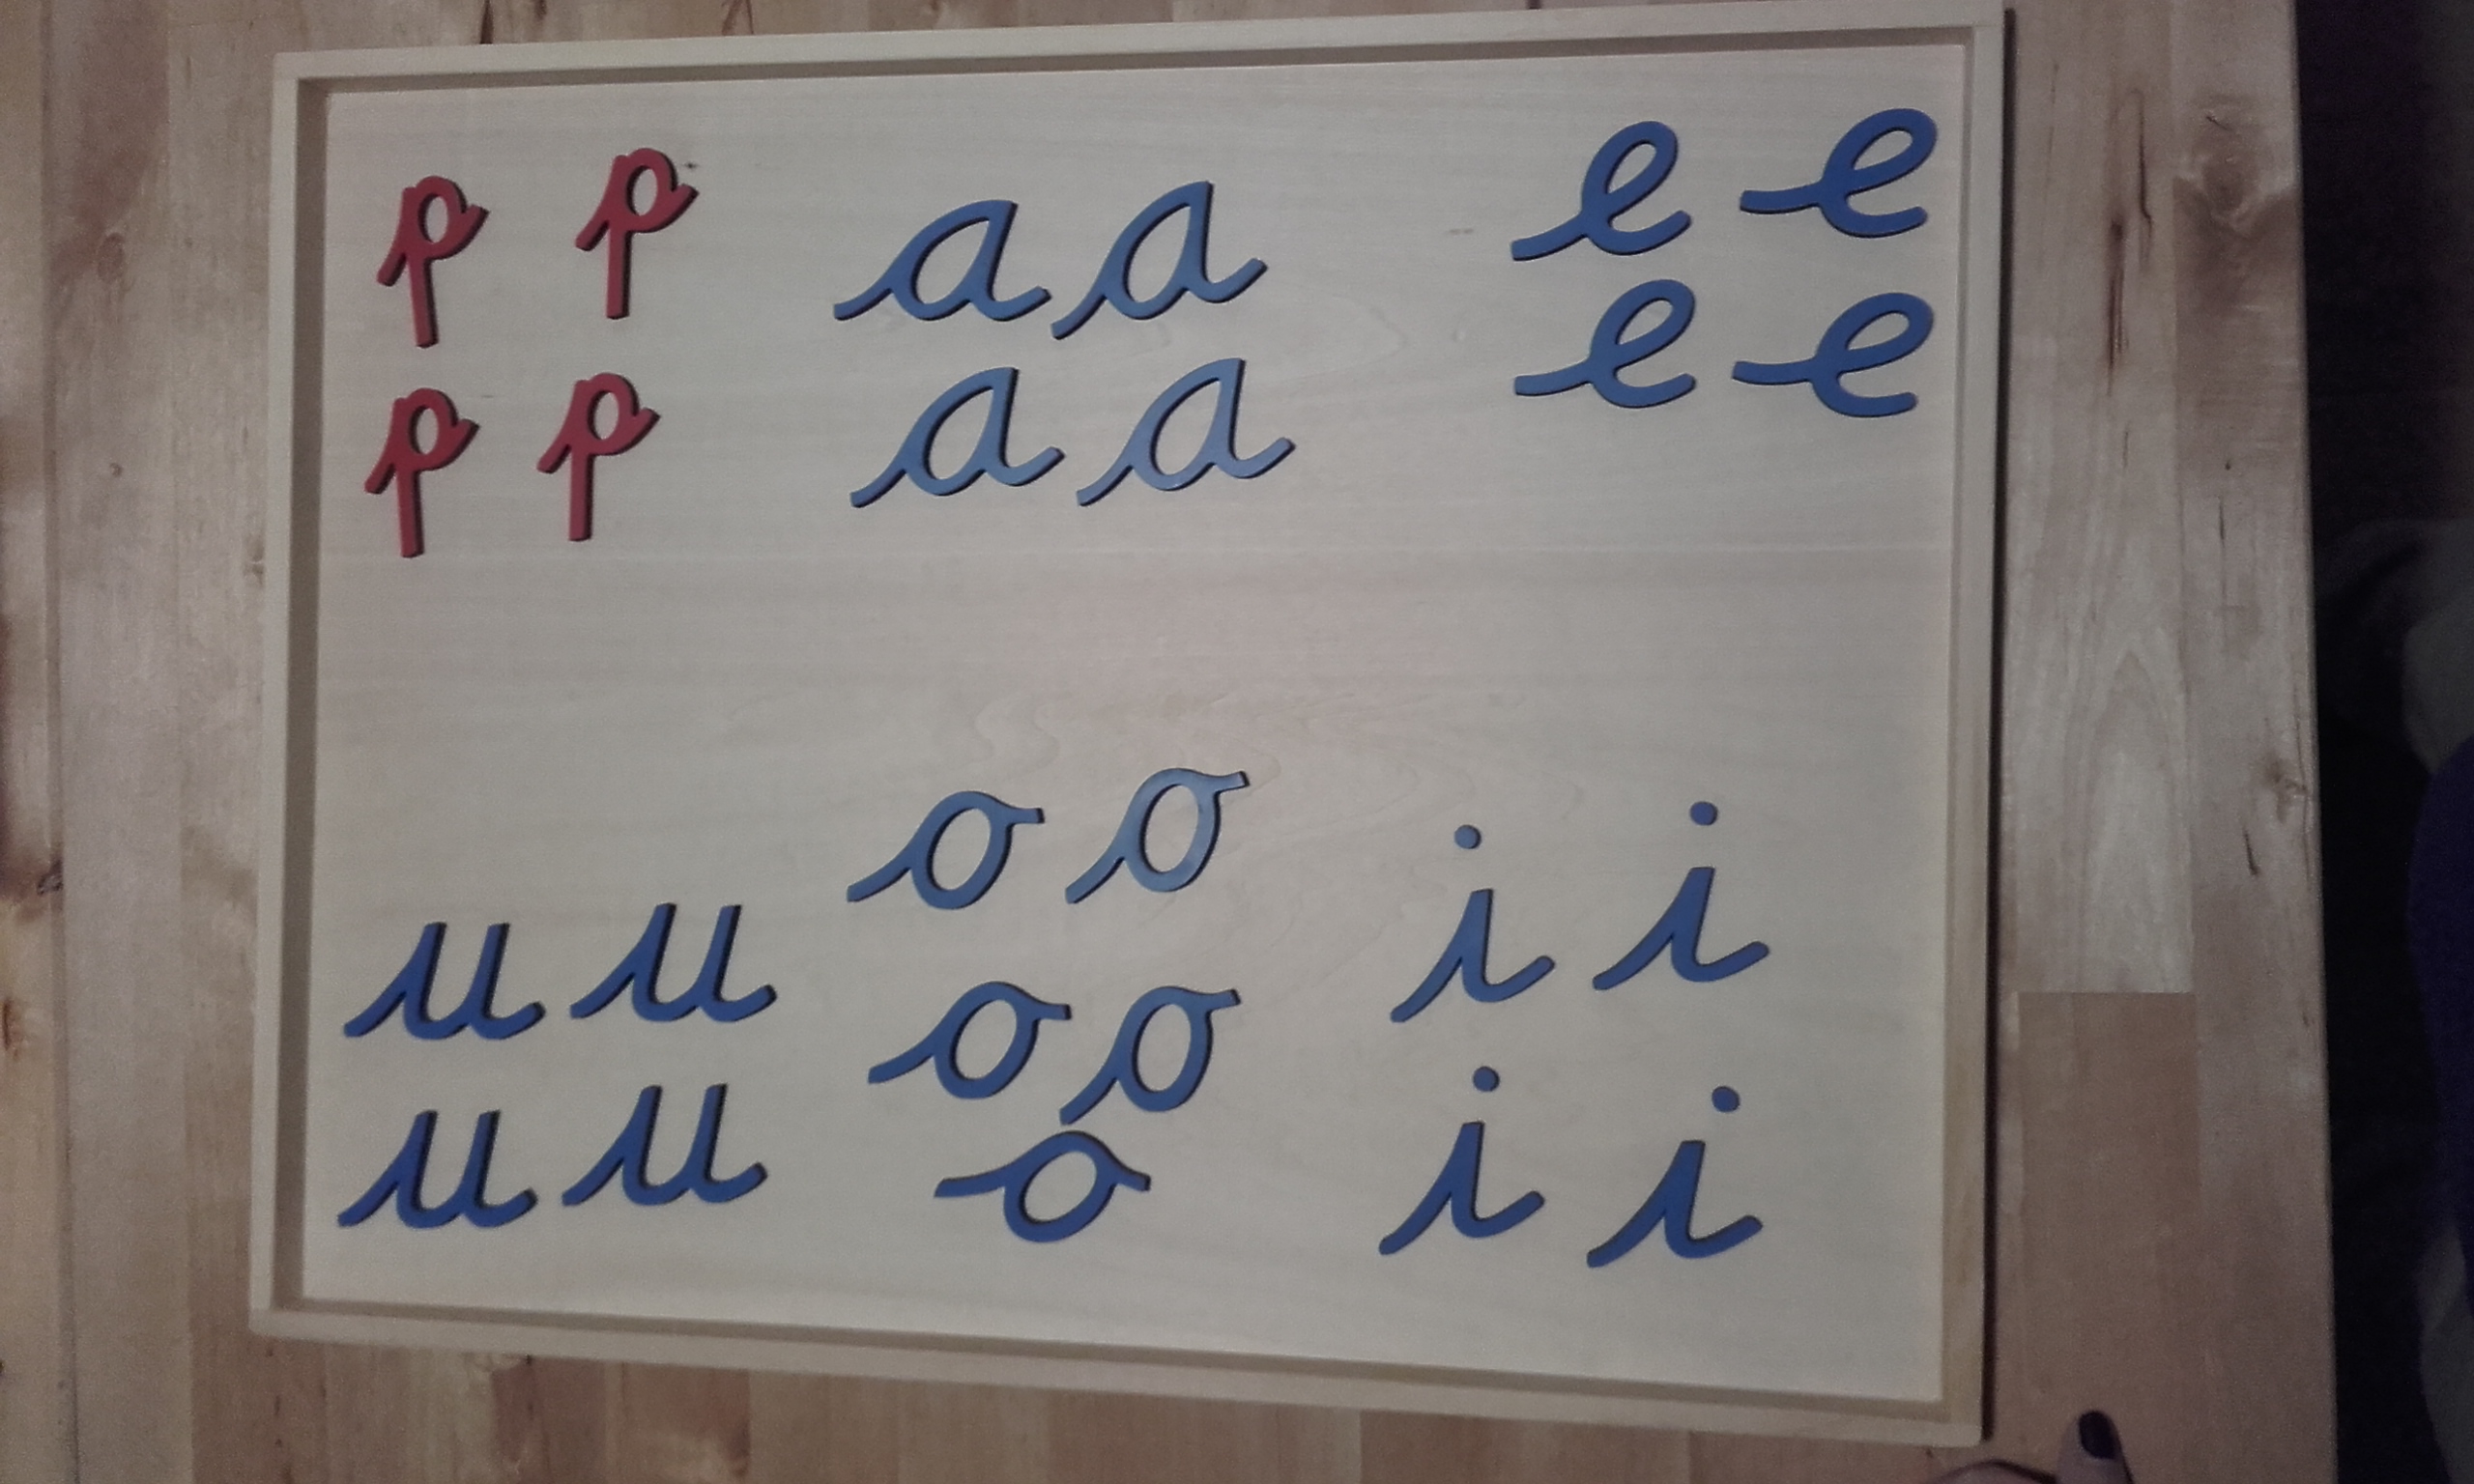 p p a a e e
p p a a e e
u u o o i i
u u o o i i
o